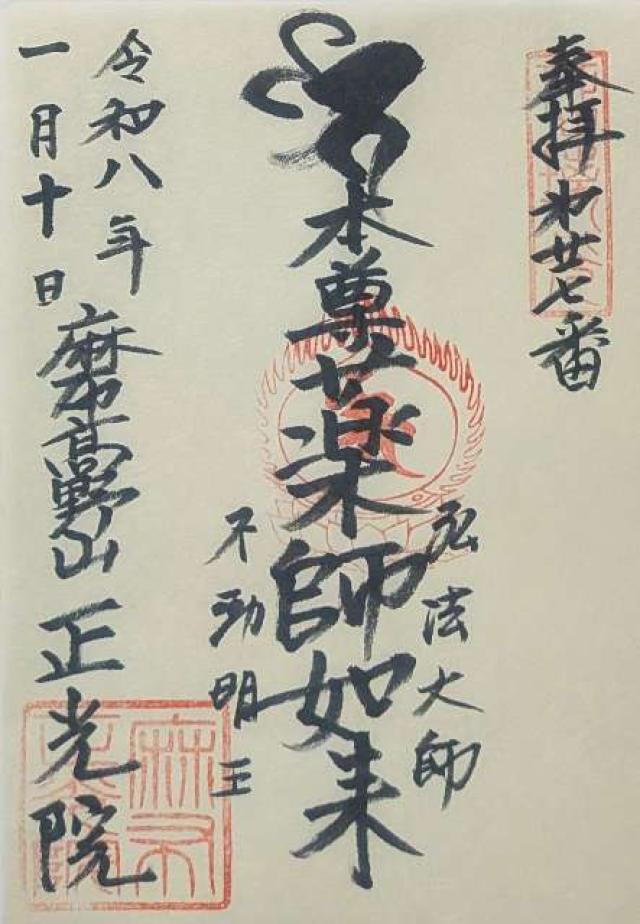 奉拝 㐧廿七番
弘法大師
本尊薬師如来
不動明王
令和八年
一月十日
麻布高野山 正光院